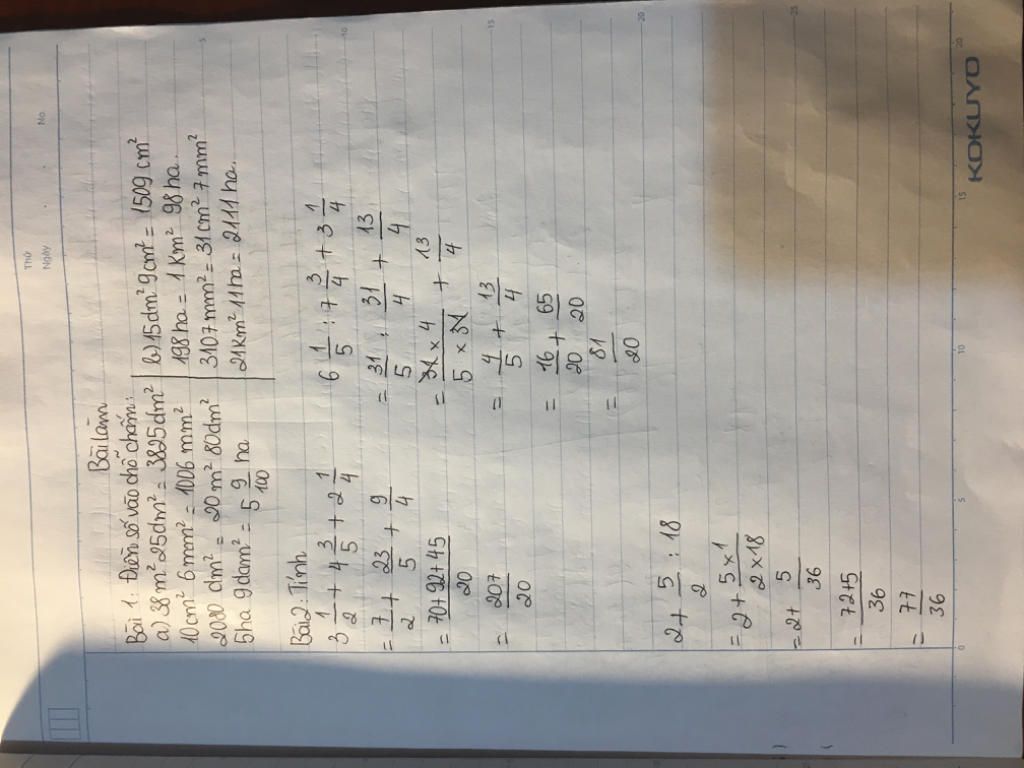 Thứ
Ngày
No.
Bài làm
Bài 1. Điền số vào chỗ chấm:
a) 38m² 25dm² = 3825dm²
10cm² 6mm² = 1006 mm²
2080 dm² = 20m² 80dm²
5ha 9dam² = 5 9/100 ha
b) 15dm² 9cm² = 1509 cm²
198ha = 1 km² 98ha.
3107mm² = 31cm² 7mm²
21km² 11ha = 2111ha.
Bài 2. Tính
3 1/2 + 4 3/5 + 2 1/4
= 7/2 + 23/5 + 9/4
= 70+92+45/20
= 207/20
6 1/5 : 7 3/4 + 3 1/4
= 31/5 : 31/4 + 13/4
= 31 × 4/5 × 31 + 13/4
= 4/5 + 13/4
= 16/20 + 65/20
= 81/20
2 + 5/2 : 18
= 2 + 5×1/2×18
= 2 + 5/36
= 72+5/36
= 77/36
5
10
15
20
25
0
5
10
15
20
KOKUYO